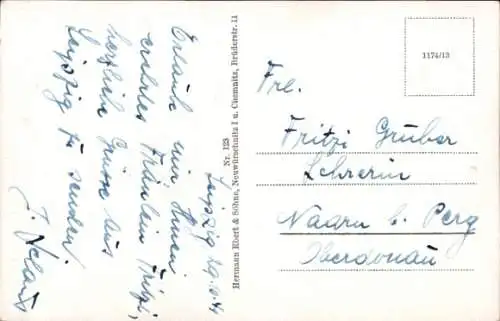 Leipzig 29.
Erlaube mir Ihnen
Fräulein Fritzi,
herzliche Grüsse aus
Leipzig zu senden.
Nr. 123
Hermann Ebert & Söhne, Neuwürschnitz I u. Chemnitz, Brüderstr. 11
1174/13
Frl.
Fritzi Gruber
Lehrerin
Naarn b. Perg
Oberdonau